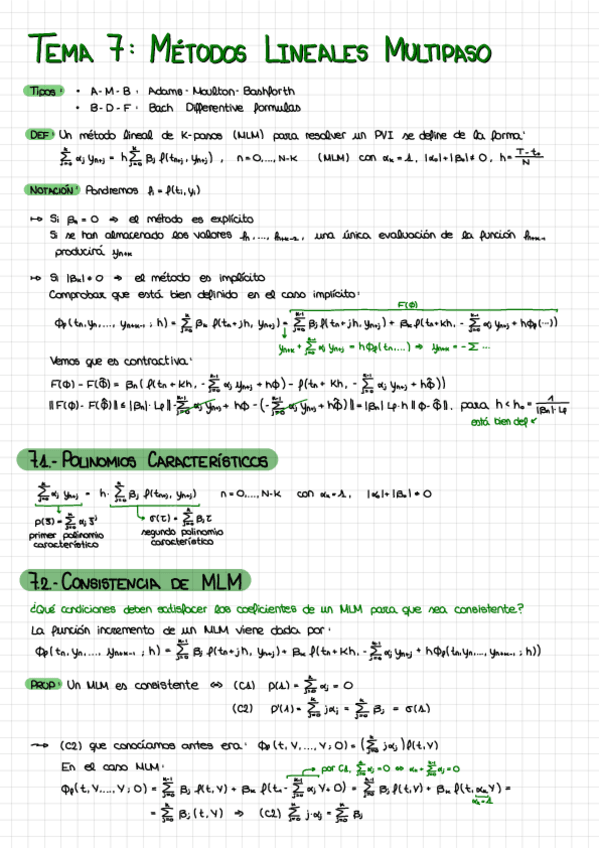 TEMA 7: MÉTODOS LINEALES MULTIPASO
Tipos: • A-M-B: Adams-Moulton-Bashforth
• B-D-F: Bach Differentive formulas
DEF: Un método lineal de K-pasos (MLM) para resolver un PVI se define de la forma:
∑_{j=0}^{k} αj yn+j = h ∑_{j=0}^{k} βj f(tn+j, yn+j), n=0,..., N-k (MLM) con αk=1, |α0|+|β0|≠0, h=(T-t0)/N
NOTACIÓN: Pondremos fi = f(ti, yi)
↦ Si βk = 0 ⇒ el método es explícito
Si se han almacenado los valores fn, ..., fn+k-2, una única evaluación de la función fn+k-1
producirá yn+k
↦ Si |βk|≠0 ⇒ el método es implícito
Comprobar que está bien definido en el caso implícito:
F(Φ)
Φf(tn, yn, ..., yn+k-1; h) = ∑_{j=0}^{k} βk f(tn+jh, yn+j) = ∑_{j=0}^{k-1} βj f(tn+jh, yn+j) + βk f(tn+kh, -∑_{j=0}^{k-1} αj yn+j + hΦf(...))
yn+k + ∑_{j=0}^{k-1} αj yn+j = hΦf(tn,...) ⇒ yn+k = -∑ ...
Vemos que es contractiva:
F(Φ) - F(Φ̂) = βk( f(tn + kh, -∑_{j=0}^{k-1} αj yn+j + hΦ) - f(tn + kh, -∑_{j=0}^{k-1} αj yn+j + hΦ̂))
‖F(Φ) - F(Φ̂)‖ ≤ |βk|·Lf ‖-∑_{j=0}^{k-1} αj yn+j + hΦ - (-∑_{j=0}^{k-1} αj yn+j + hΦ̂)‖ = |βk| Lf·h ‖Φ-Φ̂‖. para h < h0 = 1/(|βk|·Lf)
está bien def
7.1.- POLINOMIOS CARACTERÍSTICOS
∑_{j=0}^{k} αj yn+j = h· ∑_{j=0}^{k} βj f(tn+j, yn+j) n=0,..., N-k con αk=1, |α0|+|β0|≠0
ρ(ζ)=∑_{j=0}^{k} αj ζ^j σ(ζ)=∑_{j=0}^{k} βj ζ
primer polinomio segundo polinomio
característico característico
7.2.- CONSISTENCIA DE MLM
¿Qué condiciones deben satisfacer los coeficientes de un MLM para que sea consistente?
La función incremento de un MLM viene dada por:
Φf(tn, yn, ..., yn+k-1; h) = ∑_{j=0}^{k-1} βj f(tn+jh, yn+j) + βk f(tn+kh, -∑_{j=0}^{k-1} αj yn+j + hΦf(tn, yn, ..., yn+k-1; h))
PROP: Un MLM es consistente ⇔ (C1) ρ(1) = ∑_{j=0}^{k} αj = 0
(C2) ρ'(1) = ∑_{j=0}^{k} jαj = ∑_{j=0}^{k} βj = σ(1)
⟶ (C2) que conocíamos antes era: Φf(t, V, ..., V; 0) = (∑_{j=0}^{k} jαj) f(t, V)
En el caso MLM: por C1, ∑_{j=0}^{k} αj = 0 ⇔ αk = -∑_{j=0}^{k-1} αj = 0
Φf(t, V, ..., V; 0) = ∑_{j=0}^{k-1} βj f(t, V) + βk f(t, -∑_{j=0}^{k-1} αj V + 0) = ∑_{j=0}^{k-1} βj f(t, V) + βk f(t, αk V) =
αk=1
= ∑_{j=0}^{k} βj (t, V) ⇒ (C2) ∑_{j=0}^{k} j·αj = ∑_{j=0}^{k} βj